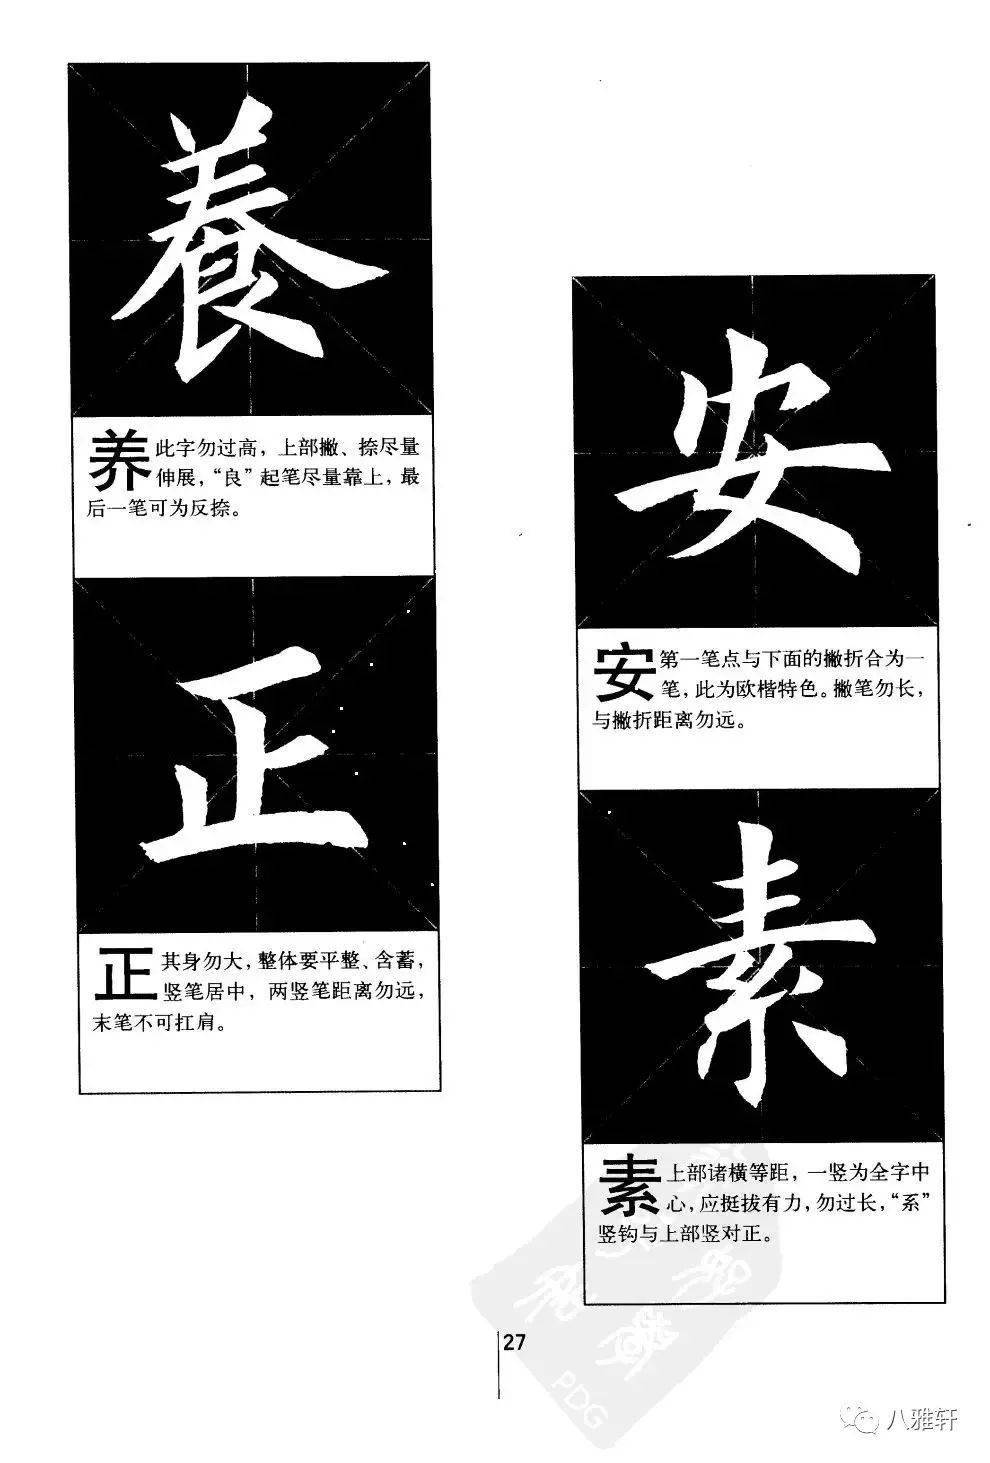 養
养 此字勿过高，上部撇、捺尽量
伸展，“良”起笔尽量靠上，最
后一笔可为反捺。
正
正 其身勿大，整体要平整、含蓄，
竖笔居中，两竖笔距离勿远，
末笔不可扛肩。
安
安 第一笔点与下面的撇折合为一
笔，此为欧楷特色。撇笔勿长，
与撇折距离勿远。
素
素 上部诸横等距，一竖为全字中
心，应挺拔有力，勿过长，“系”
竖钩与上部竖对正。
27
PDG
八雅轩